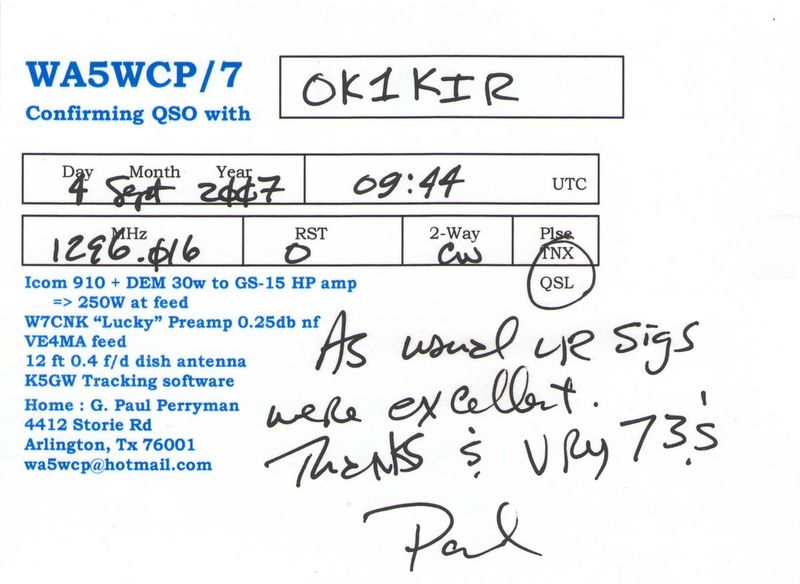 WA5WCP/7
Confirming QSO with
OK1KIR
Day Month Year
4 Sept 2007 09:44 UTC
MHz RST 2-Way Plse
1296.016 O CW TNX
QSL
Icom 910 + DEM 30w to GS-15 HP amp
=> 250W at feed
W7CNK “Lucky” Preamp 0.25db nf
VE4MA feed
12 ft 0.4 f/d dish antenna
K5GW Tracking software
Home : G. Paul Perryman
4412 Storie Rd
Arlington, Tx 76001
wa5wcp@hotmail.com
As usual ur sigs
were excellent.
Thanks & VRy 73's
Paul